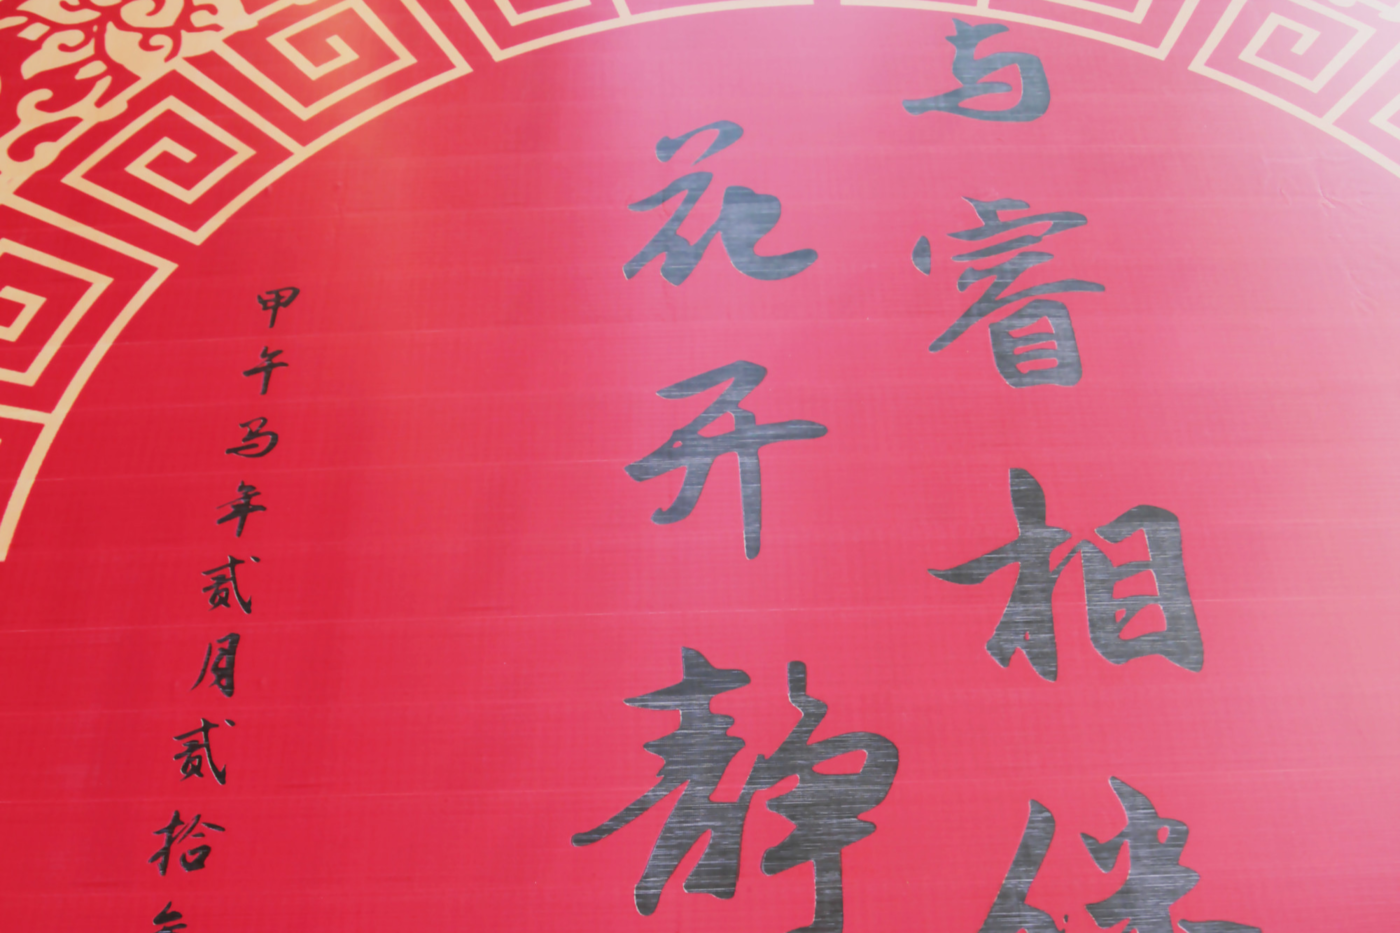 与睿相伴
花开静
甲午马年贰月贰拾